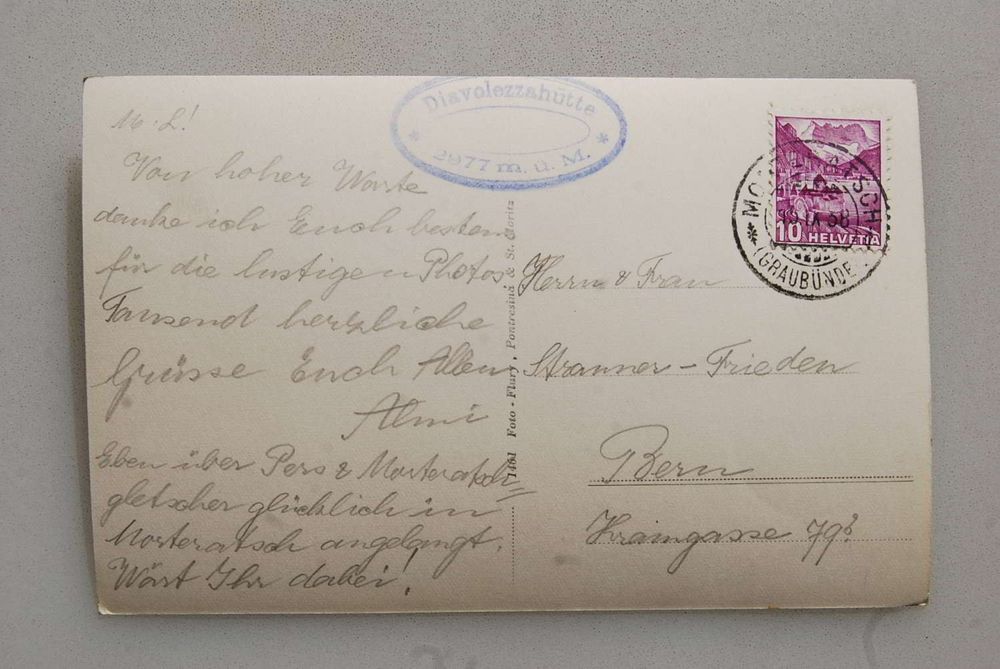 Diavolezzahütte
* 2977 m. ü. M. *
M. L!
Von hoher Warte
danke ich Euch bestens
für die lustigen Photos
Tausend herzliche
Grüsse Euch Allen
Almi
Eben über Pers & Morteratsch
gletscher glücklich in
Morteratsch angelangt.
Wärt Ihr dabei!
1461 Foto - Flury, Pontresina & St. Moritz
10 HELVETIA
(GRAUBÜNDE
Herrn & Frau
Stranner - Frieden
Bern
Kramgasse 79